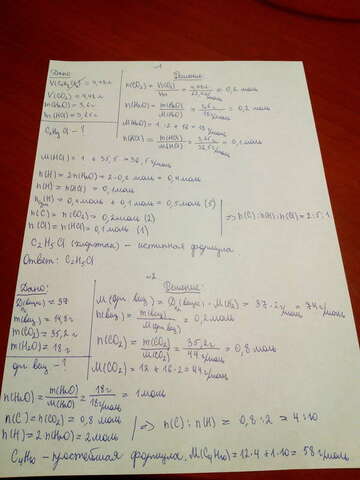 1
Дано:
V(CO₂) = 4,48 л
m(H₂O) = 3,6 г
m(HCl) = 3,65 г
Решение:
n(CO₂) = V(CO₂)/Vм = 0,2 моль
n(H₂O) = m(H₂O)/M(H₂O) = 3,6 г/18 г/моль = 0,2 моль
M(H₂O) = 1·2 + 16 = 18 г/моль
n(HCl) = m(HCl)/M(HCl) = 3,65 г/36,5 г/моль = 0,1 моль
M(HCl) = 1 + 35,5 = 36,5 г/моль
n(H) = 2n(H₂O) = 2·0,2 моль = 0,4 моль
n(H) = n(HCl) = 0,1 моль
n(H) = 0,4 моль + 0,1 моль = 0,5 моль (5)
n(C) = n(CO₂) = 0,2 моль (2)
n(Cl) = n(HCl) = 0,1 моль (1)
=> n(C):n(H):n(Cl) = 2:5:1
C₂H₅Cl – истинная формула
Ответ: C₂H₅Cl
№2
Дано:
= 37
= 14,8 г
m(CO₂) = 35,2 г
m(H₂O) = 18 г
орг. вещ – ?
Решение:
M(орг. вещ) = · M(H₂) = 37·2 г/моль = 74 г/моль
n(вещ) = m(вещ)/M(орг вещ) = 0,2 моль
n(CO₂) = m(CO₂)/M(CO₂) = 35,2 г/44 г/моль = 0,8 моль
M(CO₂) = 12 + 16·2 = 44 г/моль
n(H₂O) = m(H₂O)/M(H₂O) = 18 г/18 г/моль = 1 моль
n(C) = n(CO₂) = 0,8 моль
n(H) = 2·n(H₂O) = 2 моль
=> n(C) : n(H) = 0,8 : 2 = 4:10
C₄H₁₀ – простейшая формула, M(C₄H₁₀) = 12·4 + 1·10 = 58 г/моль